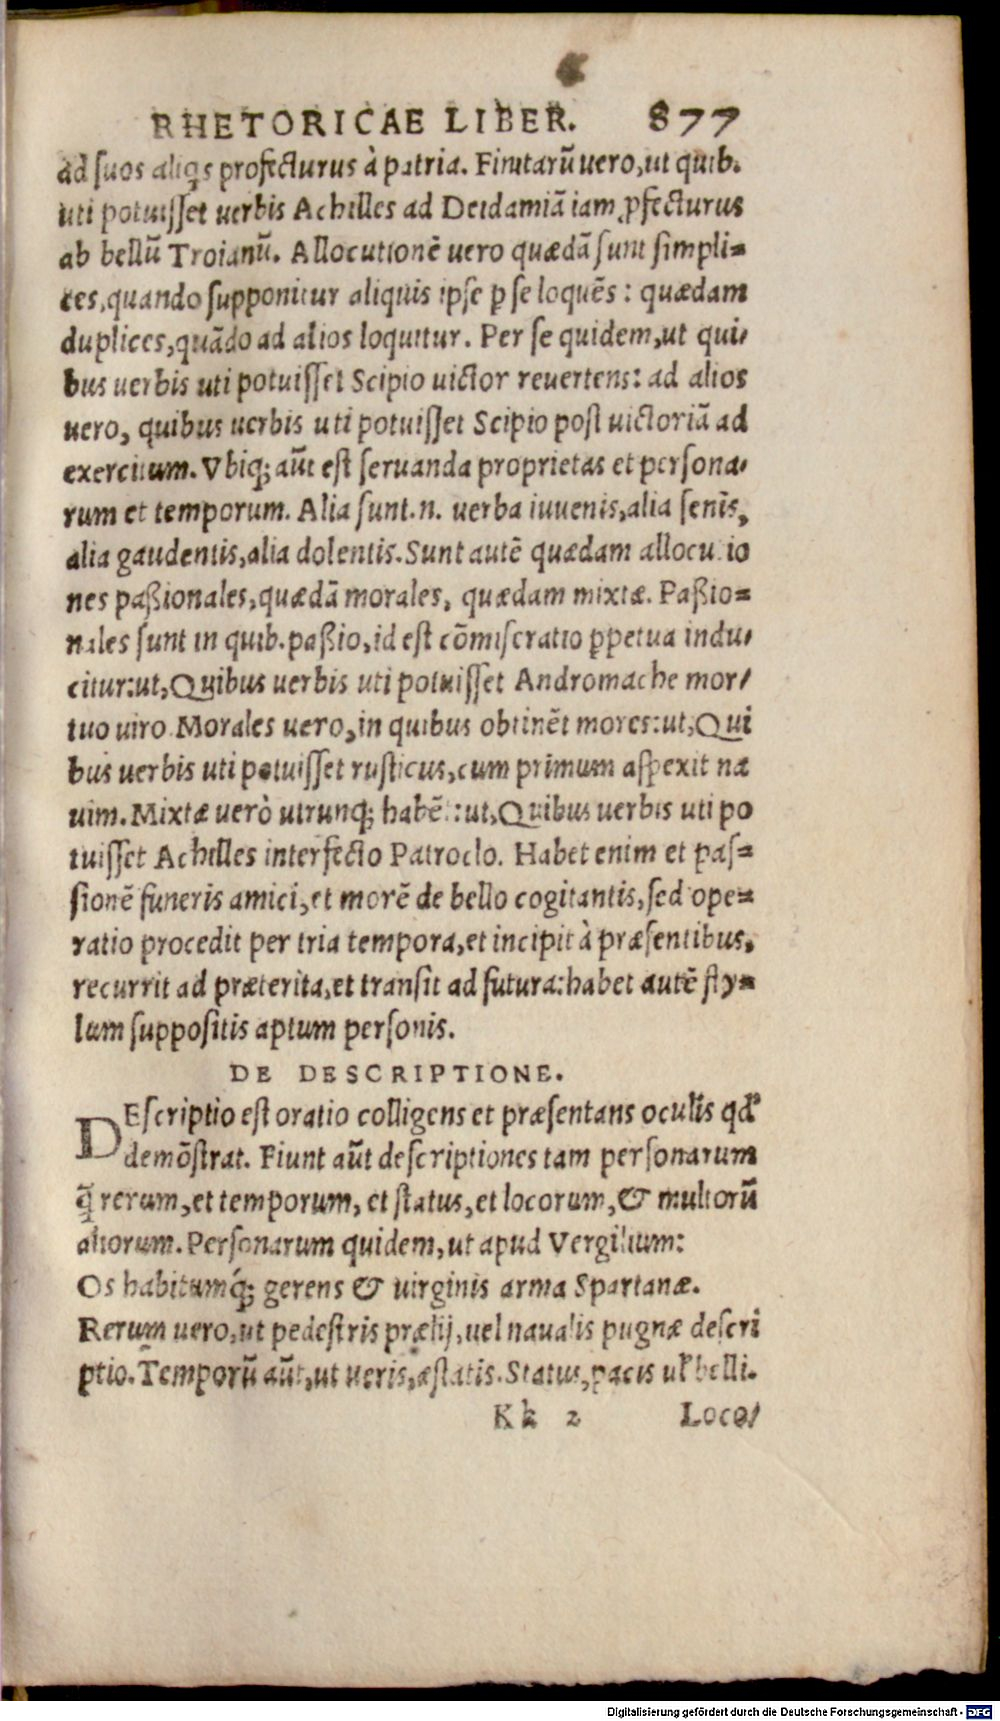 RHETORICAE LIBER. 877
ad suos aliqs profecturus à patria. Finitarũ vero, ut quib.
uti potuisset uerbis Achilles ad Deidamiã iam ꝓfecturus
ab bellũ Troianũ. Allocutionẽ uero quædã sunt simpli=
ces, quando supponitur aliquis ipse ꝑ se loquẽs: quædam
duplices, quãdo ad alios loquitur. Per se quidem, ut qui/
bus uerbis uti potuisset Scipio uictor reuertens: ad alios
uero, quibus uerbis uti potuisset Scipio post uictoriã ad
exercitum. Vbiq; aũt est seruanda proprietas et persona/
rum et temporum. Alia sunt.n. uerba iuuenis, alia senis,
alia gaudentis, alia dolentis. Sunt autẽ quædam allocu io
nes paßionales, quædã morales, quædam mixtæ. Paßio=
nales sunt in quib. paßio, id est cõmiseratio ꝑpetua indu/
citur: ut, Quibus uerbis uti potuisset Andromache mor/
tuo uiro. Morales uero, in quibus obtinẽt mores: ut, Qui
bus uerbis uti potuisset rusticus, cum primum aspexit na
uim. Mixtæ uerò utrunq; habẽt: ut, Quibus uerbis uti po
tuisset Achilles interfecto Patroclo. Habet enim et pas=
sionẽ funeris amici, et morẽ de bello cogitantis, sed ope=
ratio procedit per tria tempora, et incipit à præsentibus,
recurrit ad præterita, et transit ad futura: habet autẽ sty=
lum suppositis aptum personis.
DE DESCRIPTIONE.
DEscriptio est oratio colligens et præsentans oculis qđ
demõstrat. Fiunt aũt descriptiones tam personarum
q̃ rerum, et temporum, et status, et locorum, & multorũ
aliorum. Personarum quidem, ut apud Vergilium:
Os habitumq́; gerens & uirginis arma Spartanæ.
Rerum uero, ut pedestris prælij, uel naualis pugnæ descri
ptio. Temporũ aũt, ut ueris, æstatis. Status, pacis uł belli.
Kk 2 Loco/
Digitalisierung gefördert durch die Deutsche Forschungsgemeinschaft - DFG